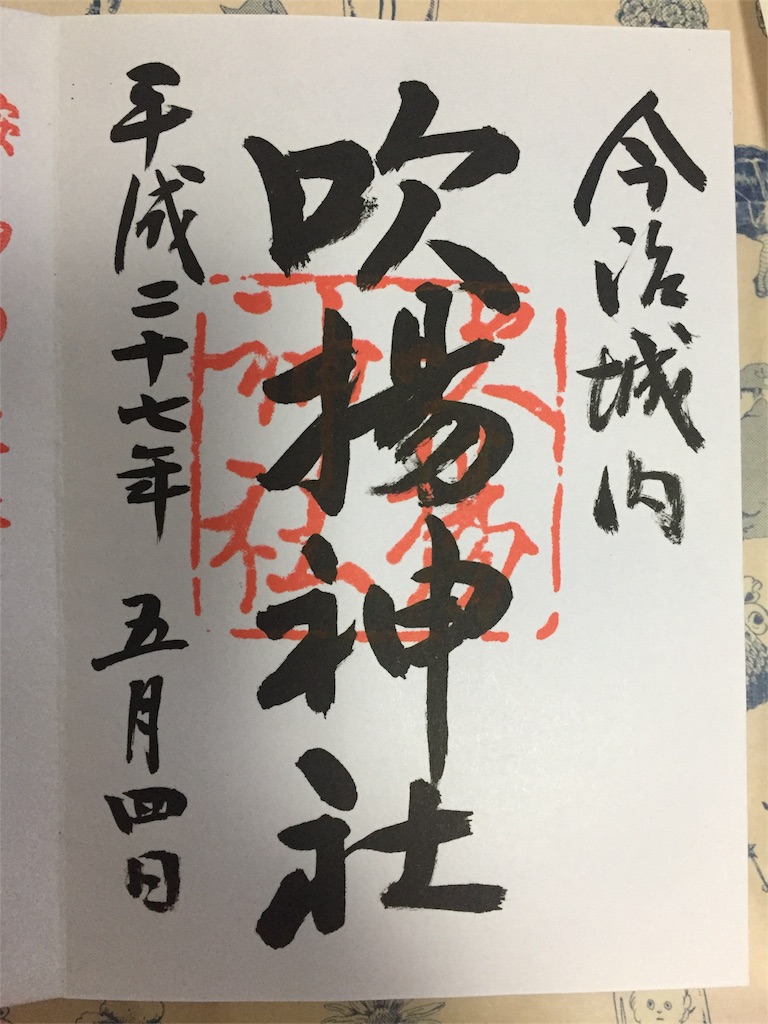 今治城内
吹揚神社
平成二十七年 五月四日